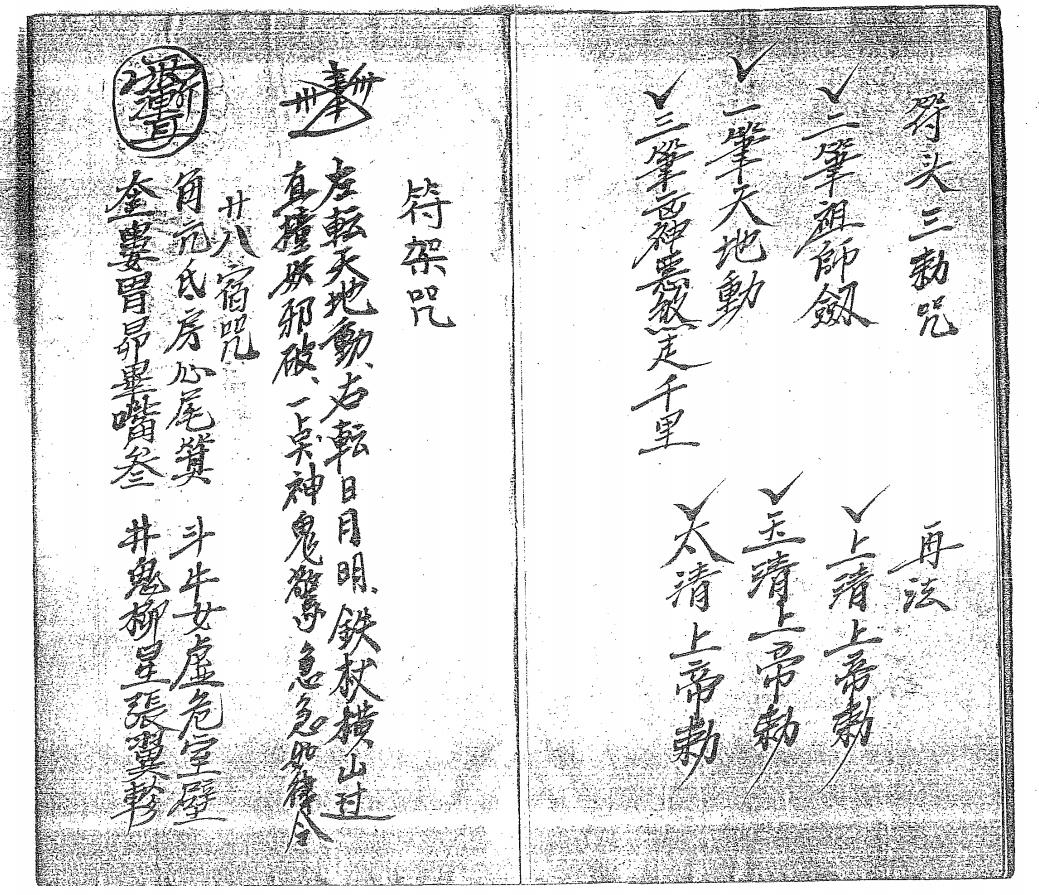 符头三勅咒
二筆祖師劔
一筆天地動
三筆凶神惡煞走千里
再法
上清上帝勅
玉清上帝勅
太清上帝勅
符架咒
左転天地動、右転日月明、鉄杖横山过
直撞妖邪破、一点神鬼驚急急如律令
廿八宿咒
角亢氐房心尾箕 斗牛女虛危室壁
奎婁胃昴畢嘴參 井鬼柳星張翼軫